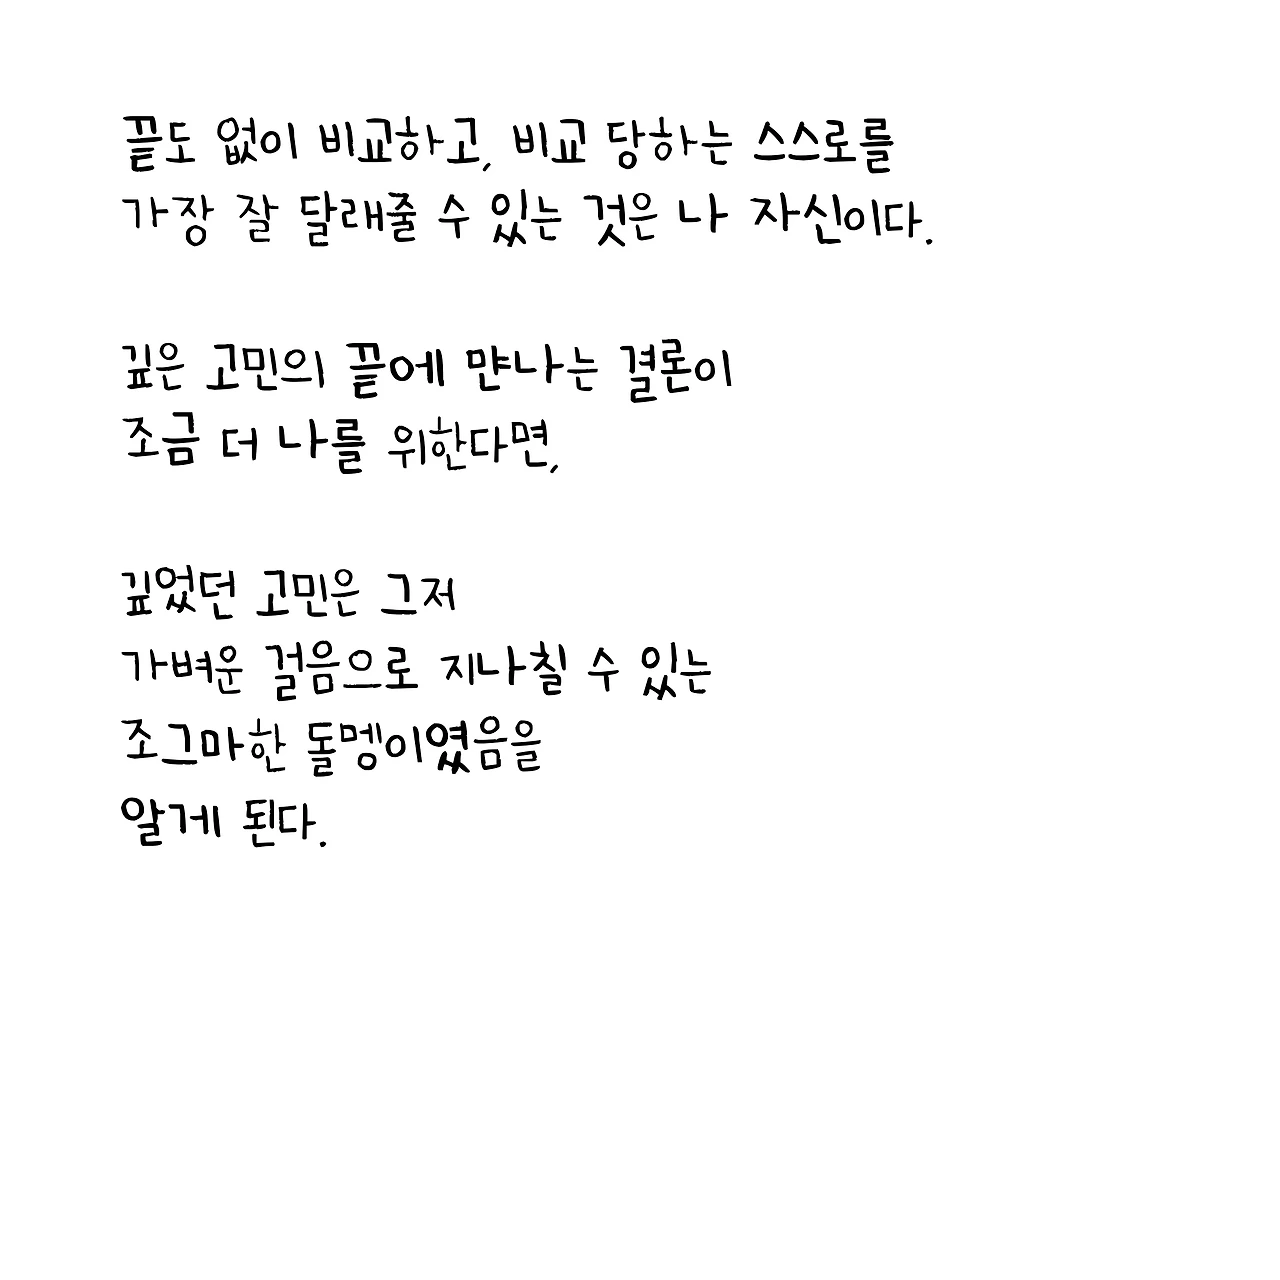 끝도 없이 비교하고, 비교 당하는 스스로를
가장 잘 달래줄 수 있는 것은 나 자신이다.
깊은 고민의 끝에 만나는 결론이
조금 더 나를 위한다면,
깊었던 고민은 그저
가벼운 걸음으로 지나칠 수 있는
조그마한 돌멩이였음을
알게 된다.